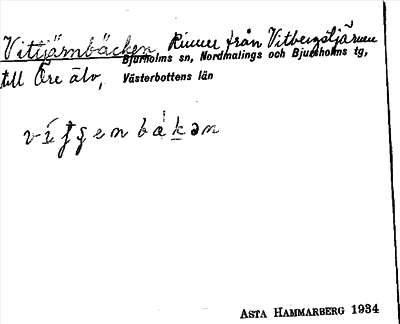 Vittjärnbäcken Rinner från Vitbergstjärnen
Bjurholms sn, Nordmalings och Bjurholms tg,
till Öre älv, Västerbottens län
ASTA HAMMARBERG 1934